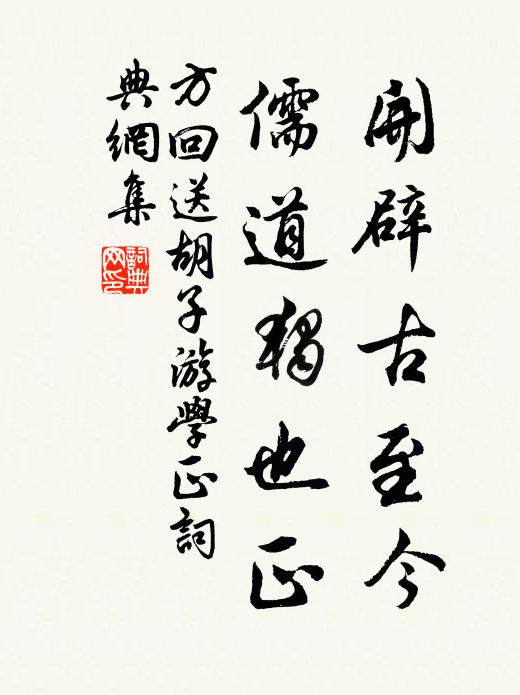 開辟古至今
儒道獨也正
方回送胡子游學正詞
典網集
詞典
網印